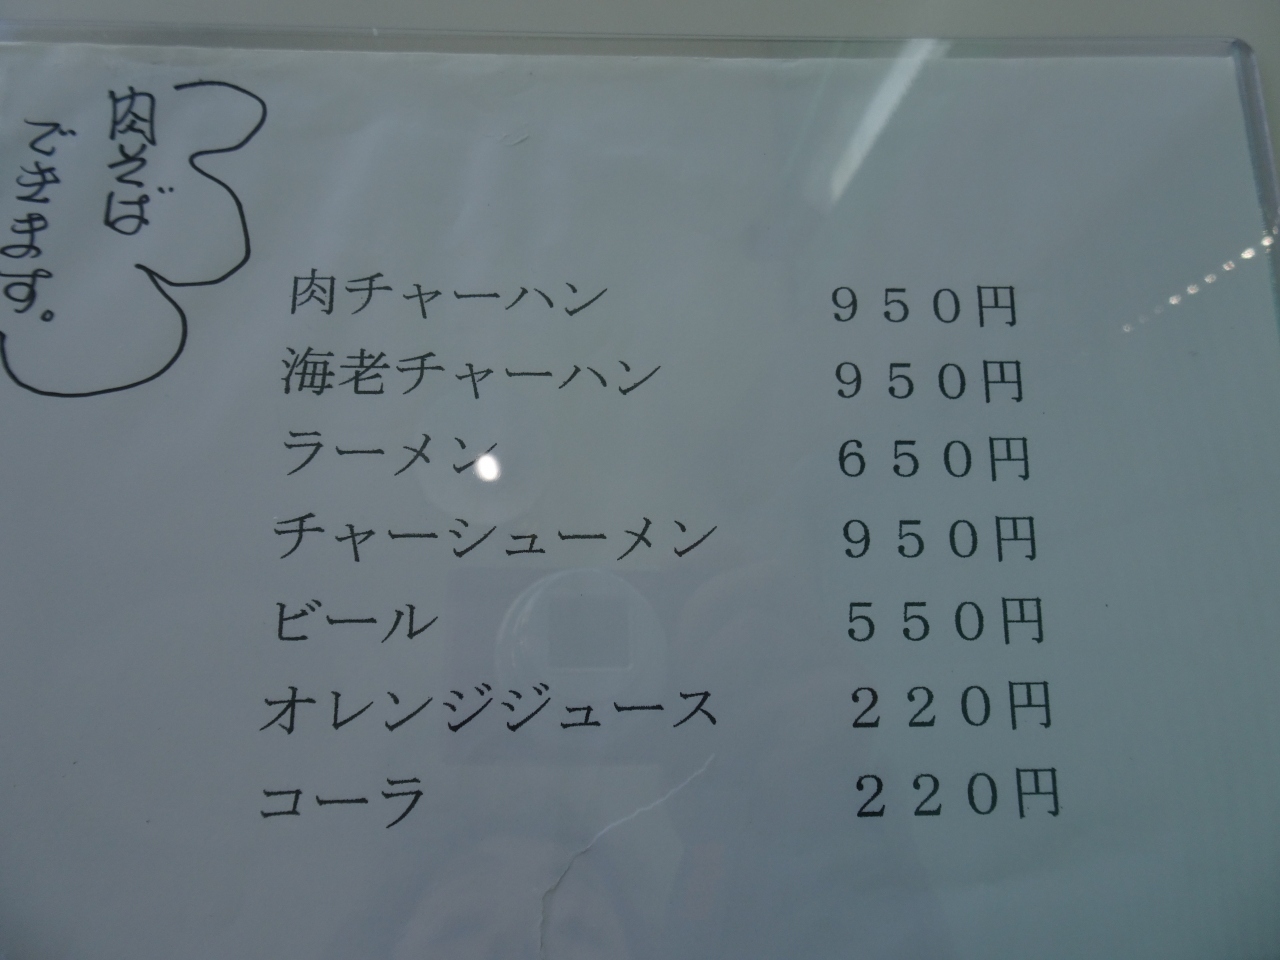 肉そば
できます。
肉チャーハン ９５０円
海老チャーハン ９５０円
ラーメン ６５０円
チャーシューメン ９５０円
ビール ５５０円
オレンジジュース ２２０円
コーラ ２２０円